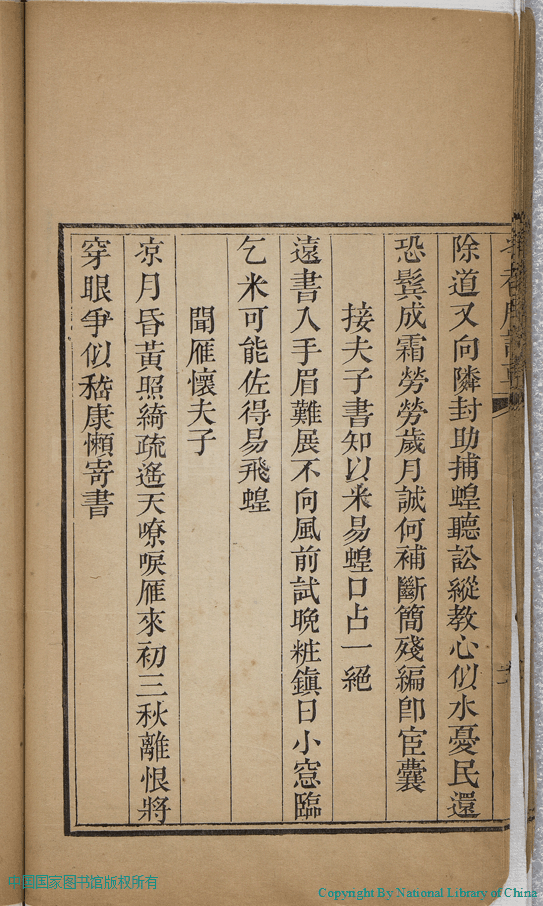 除道又向隣封助捕蝗聽訟縱教心似水憂民還
恐鬂成霜勞勞歲月誠何補斷簡殘編卽宦囊
接夫子書知以米易蝗口占一絕
遠書入手眉難展不向風前試晚粧鎭日小窓臨
乞米可能佐得易飛蝗
聞雁懷夫子
凉月昏黃照綺疏遙天嘹唳雁來初三秋離恨將
穿眼爭似嵇康懶寄書
中国国家图书馆版权所有
Copyright By National Library of China